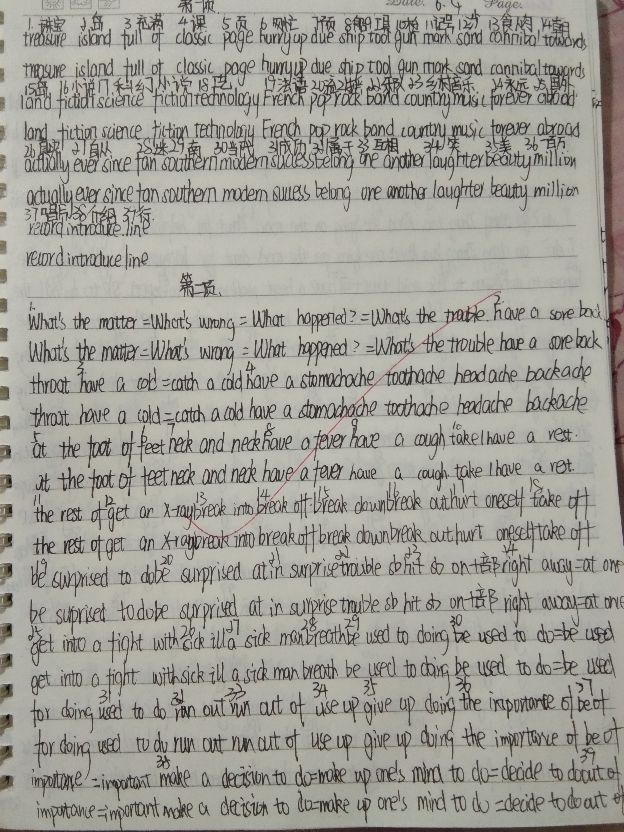 第一项 Date. 6.4 Page.
1.珠宝 2岛 3充满 4课 5页 6匆忙 7预 8船 工具 10枪 11记号 12沙 13食人肉 14朝
treasure island full of classic page hurry up due ship tool gun mark sand cannibal towards
treasure island full of classic page hurry up due ship tool gun mark sand cannibal towards
15陆 16小说 17科幻小说 18技 19法语 22乐队 23乡村音乐 24永远 25国外
land fiction science fiction technology French pop rock band country music forever abroad
land fiction science fiction technology French pop rock band country music forever abroad
27自从 28迷 29南 30当代 31成功 32属于 33互相 34笑 35美 36百万
actually ever since fan southern modern success belong one another laughter beauty million
actually ever since fan southern modern success belong one another laughter beauty million
37唱片 38介绍 39行
record introduce line
record introduce line
第二项
1. 2
What's the matter = What's wrong = What happened? = What's the trouble have a sore back
What's the matter = What's wrong = What happened? = What's the trouble have a sore back
3 4
throat have a cold = catch a cold have a stomachache toothache headache backache
throat have a cold = catch a cold have a stomachache toothache headache backache
5 7 8 9 10
at the foot of feet neck and neck have a fever have a cough take/have a rest.
at the foot of feet neck and neck have a fever have a cough take/have a rest.
11 12 13 14 15 16 18
the rest of get an X-ray break into break off break down break out hurt oneself take off
the rest of get an X-ray break into break off break down break out hurt oneself take off
19 20 21 22 23 24
be surprised to do be surprised at in surprise trouble sb hit sb on+部 right away = at one
be surprised to do be surprised at in surprise trouble sb hit sb on+部 right away = at one
25 26 27 28 29 30
get into a fight with sick ill a sick man breath be used to doing be used to do = be used
get into a fight with sick ill a sick man breath be used to doing be used to do = be used
31 32 33 34 35 36 37
for doing used to do run out run out of use up give up doing the importance of be of
for doing used to do run out run out of use up give up doing the importance of be of
38 39
importance = important make a decision to do = make up one's mind to do = decide to do out of
importance = important make a decision to do = make up one's mind to do = decide to do out of